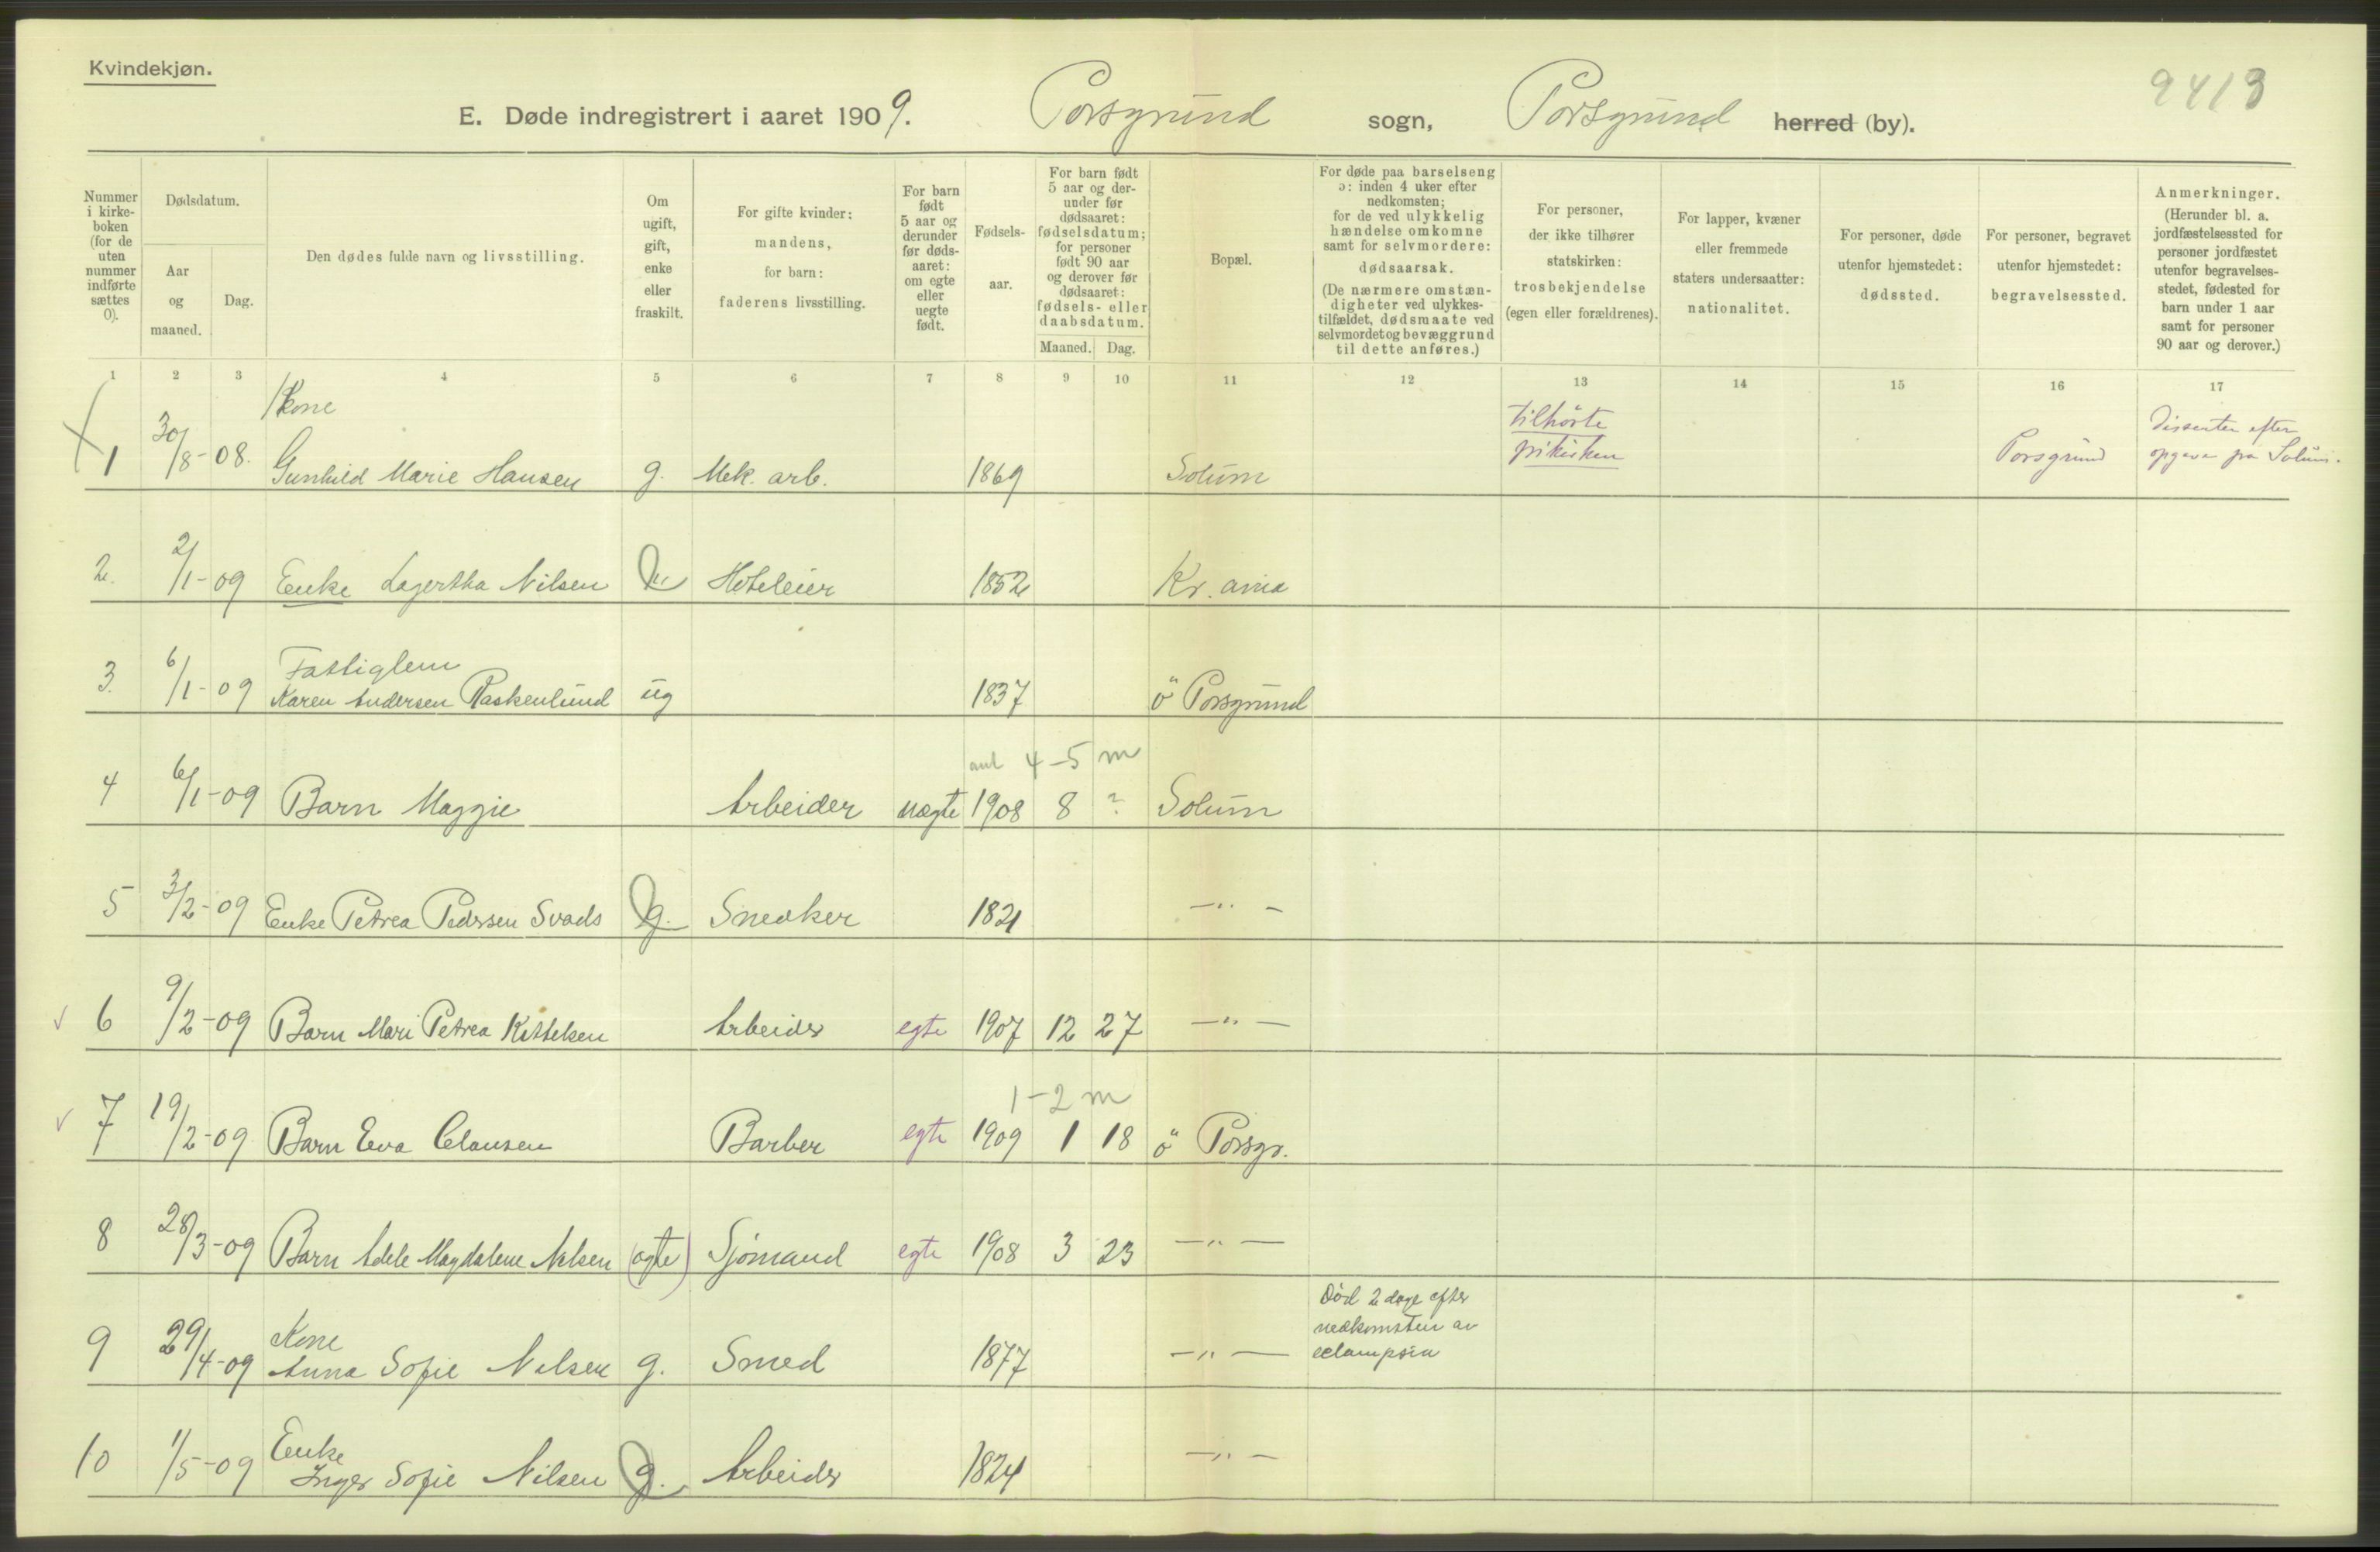 Kvindekjøn.
9413
E. Døde indregistrert i aaret 1909. Porsgrund sogn, Porsgrund herred (by).
Nummer i kirkeboken (for de uten nummer indførte sættes 0).
Dødsdatum.
Aar og maaned.
Dag.
Den dødes fulde navn og livsstilling.
Om ugift, gift, enke eller fraskilt.
For gifte kvinder: mandens, for barn: faderens livsstilling.
For barn født 5 aar og derunder før dødsaaret: om egte eller uegte født.
Fødselsaar.
For barn født 5 aar og derunder før dødsaaret: fødselsdatum; for personer født 90 aar og derover før dødsaaret: fødsels- eller daabsdatum.
Maaned. Dag.
Bopæl.
For døde paa barselseng ɔ: inden 4 uker efter nedkomsten; for de ved ulykkelig hændelse omkomne samt for selvmordere: dødsaarsak. (De nærmere omstændigheter ved ulykkestilfældet, dødsmaate ved selvmordet og bevæggrund til dette anføres.)
For personer, der ikke tilhører statskirken: trosbekjendelse (egen eller forældrenes).
For lapper, kvæner eller fremmede staters undersaatter: nationalitet.
For personer, døde utenfor hjemstedet: dødssted.
For personer, begravet utenfor hjemstedet: begravelsessted.
Anmerkninger. (Herunder bl. a. jordfæstelsessted for personer jordfæstet utenfor begravelsesstedet, fødested for barn under 1 aar samt for personer 90 aar og derover.)
1 2 3 4 5 6 7 8 9 10 11 12 13 14 15 16 17
Kone
1 30/8-08. Gunhild Marie Hansen g. Mek. arb. 1869 Solum tilhörte frikirken Porsgrund Dissenter efter opgave fra Solum.
2. 2/1-09 Enke Lagertha Nilsen Hoteleier 1852 Kr.ania
Fattiglem
3. 6/1-09 Karen Andersen Raskenlund ug 1837 ö Porsgrund
4-5 m
4 6/1-09 Barn Maggie Arbeider uægte 1908 8 ? Solum
5 3/2-09 Enke Petrea Pedersen Svads g. Snedker 1821 -"-
6 9/2-09 Barn Mari Petrea Kittelsen Arbeider egte 1907 12 27 -"-
1-2 m
7 19/2-09 Barn Eva Clausen Barber egte 1909 1 18 ö Porsgr.
8 28/3-09 Barn Adele Magdalene Nilsen (egte) Sjömand egte 1908 3 23 -"-
Kone
9 29/4-09 Anna Sofie Nilsen g. Smed 1877 -"- Död 2 dage efter nedkomsten av eclampsia
Enke
10 1/5-09 Inger Sofie Nilsen g. Arbeider 1824 -"-